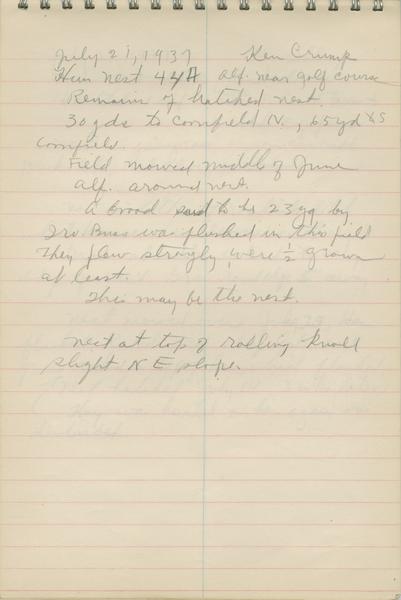 July 21, 1937 Ken Crump
Hun nest 44A Alf. near golf course
Remains of hatched nest.
30 yds to Cornfield N., 65 yd S
Cornfield.
Field mowed middle of June
alf. around nest.
A brood said to be 23 yg by
Irv Buss was flushed in this field
They flew strongly were ½ grown
at least.
This may be the nest.
nest at top of rolling knoll
slight N E slope.